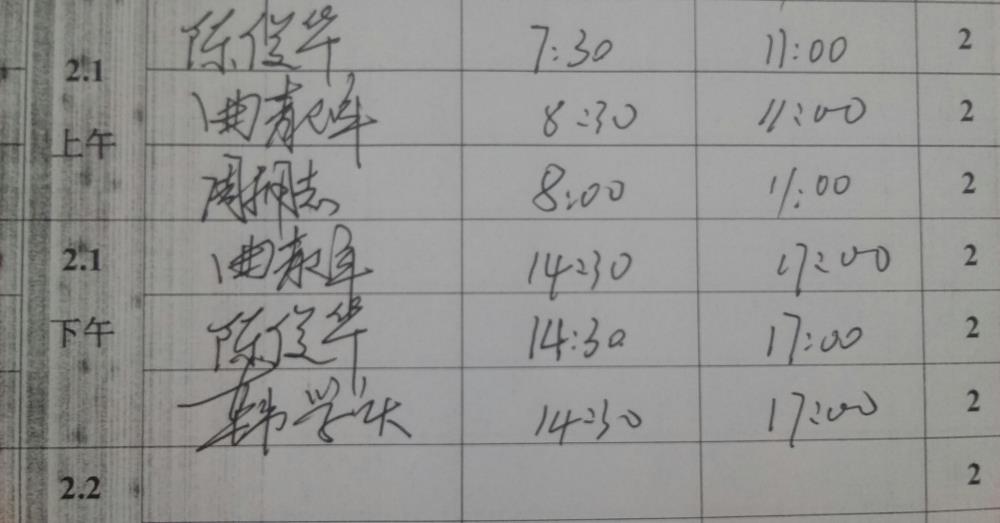 陈俊华 7:30 11:00 2
2.1
曲 8:30 11:00 2
上午
周 志 8:00 11:00 2
2.1 曲 14:30 17:00 2
下午 陈俊华 14:30 17:00 2
韩学 14:30 17:00 2
2.2 2